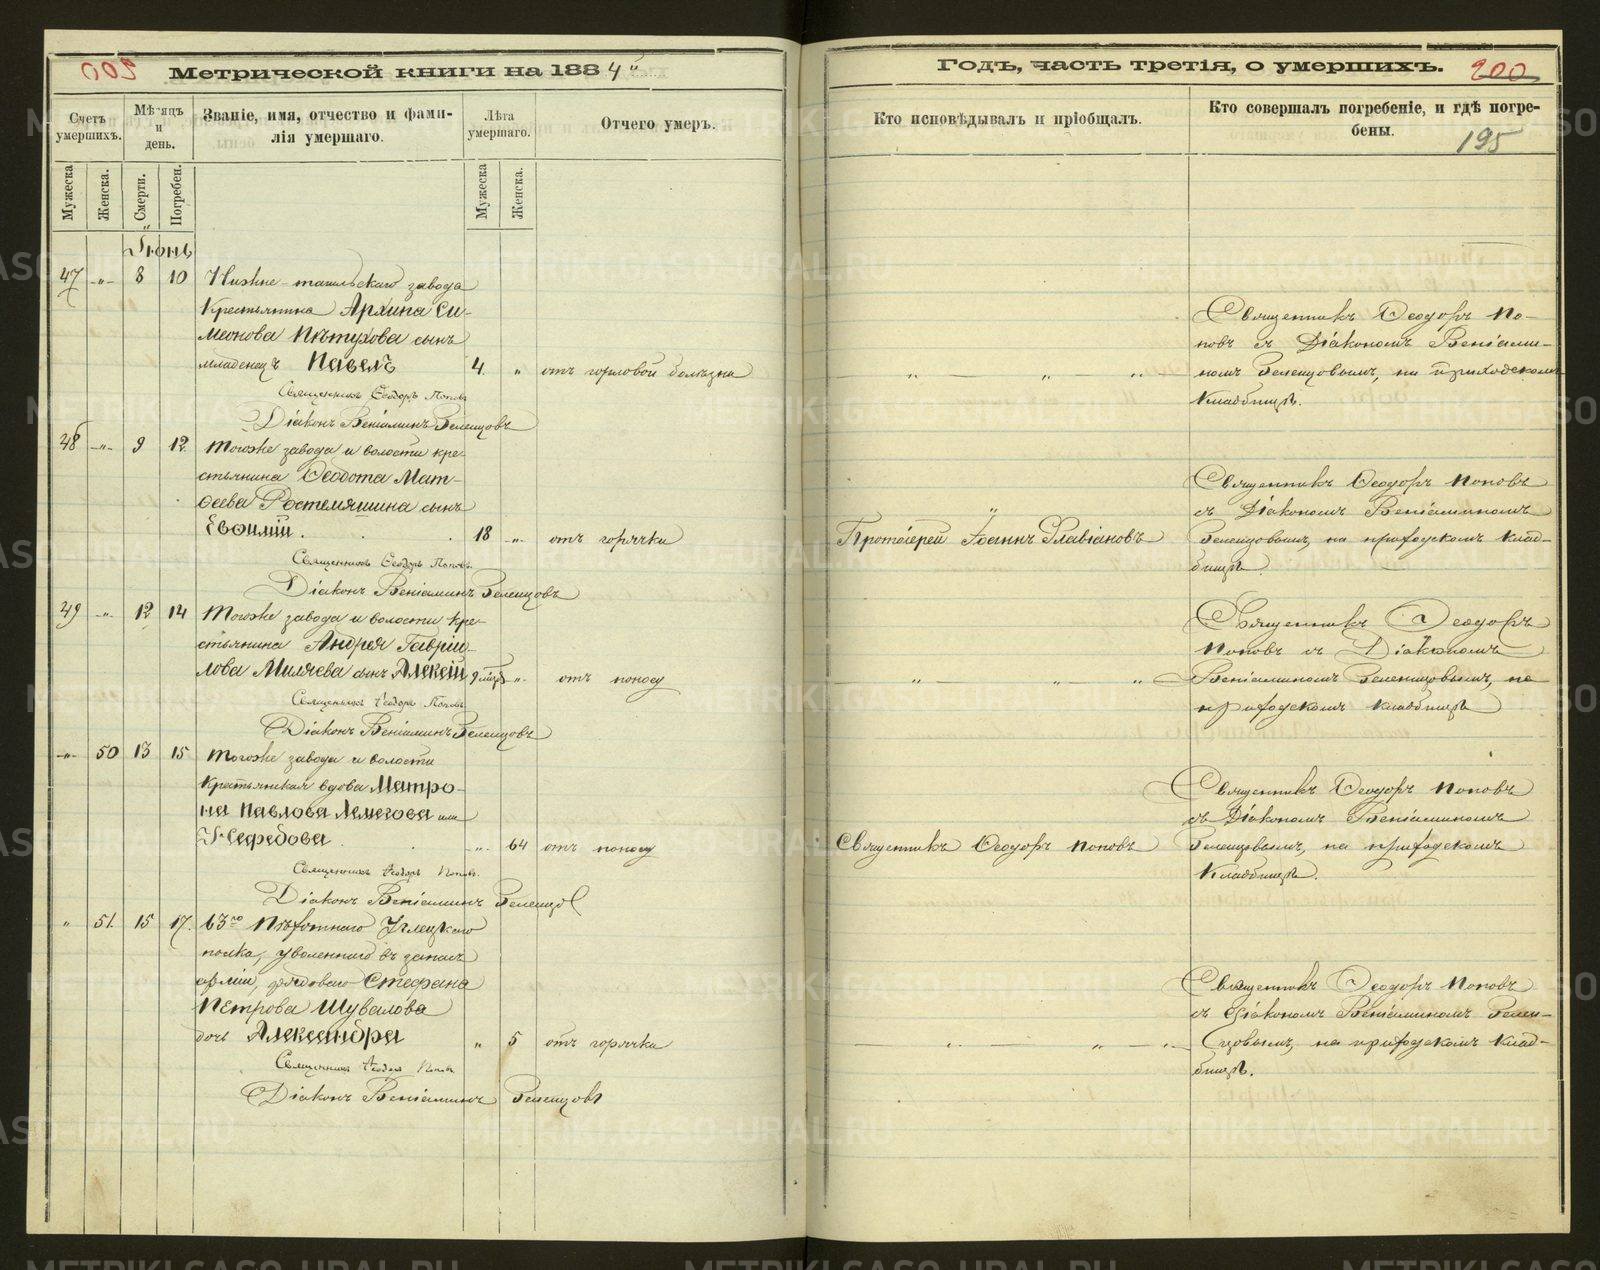 Метрической книги на 1884
Счетъ умершихъ.
Мѣсяцъ и день.
Званіе, имя, отчество и фами-
лія умершаго.
Лѣта умершаго.
Отчего умеръ.
Мужеска
Женска.
Смерти.
Погребен.
Мужеска
Женска.
Іюнь
47 8 10 Нижне-тагильскаго завода
Крестьянина Архипа Си-
меонова Пѣтухова сынъ
младенецъ Павелъ 4. отъ горловой болѣзни
Священникъ Ѳеодоръ Поповъ
Діаконъ Веніаминъ
48 9 12 Тогоже завода и волости кре-
стьянина Ѳеодота Мат-
ѳеева сынъ
Евѳимій. 18 отъ горячки
Священникъ Ѳеодоръ Поповъ
Діаконъ Веніаминъ
49 12 14 Тогоже завода и волости кре-
стьянина Андрея Гаврі-
лова Миляева сынъ Алексій отъ поносу
Священникъ Ѳеодоръ Поповъ
Діаконъ Веніаминъ
50 13 15 Тогоже завода и волости
Крестьянская вдова Матро-
на Павлова или
64 отъ поносу
Священникъ Ѳеодоръ Поповъ
Діаконъ Веніаминъ
51. 15 17. 63го Пѣхотнаго Углецкаго
полка, уволеннаго въ запасъ
арміи, рядоваго Стефана
Петрова Шувалова
дочь Александра 5 отъ горячки
Священникъ Ѳеодоръ Поповъ
Діаконъ Веніаминъ
Годъ, часть третія, о умершихъ. 200
Кто исповѣдывалъ и пріобщалъ.
Кто совершалъ погребеніе, и гдѣ погре-
бены.
195
Священникъ Ѳеодоръ По-
повъ съ Діакономъ Веніами-
номъ на приходскомъ
Кладбищѣ.
Священникъ Ѳеодоръ Поповъ
съ Діакономъ Веніаминомъ
Протоіерей Іоаннъ Флавіановъ на приходскомъ клад-
бищѣ
Священникъ Ѳеодоръ
Поповъ съ Діакономъ
Веніаминомъ на
приходскомъ кладбищѣ
Священникъ Ѳеодоръ Поповъ
съ Діакономъ Веніаминомъ
Священникъ Ѳеодоръ Поповъ на приходскомъ
Кладбищѣ.
Священникъ Ѳеодоръ Поповъ
съ Діакономъ Веніаминомъ
на приходскомъ клад-
бищѣ.
METRIKI.GASO-URAL.RU